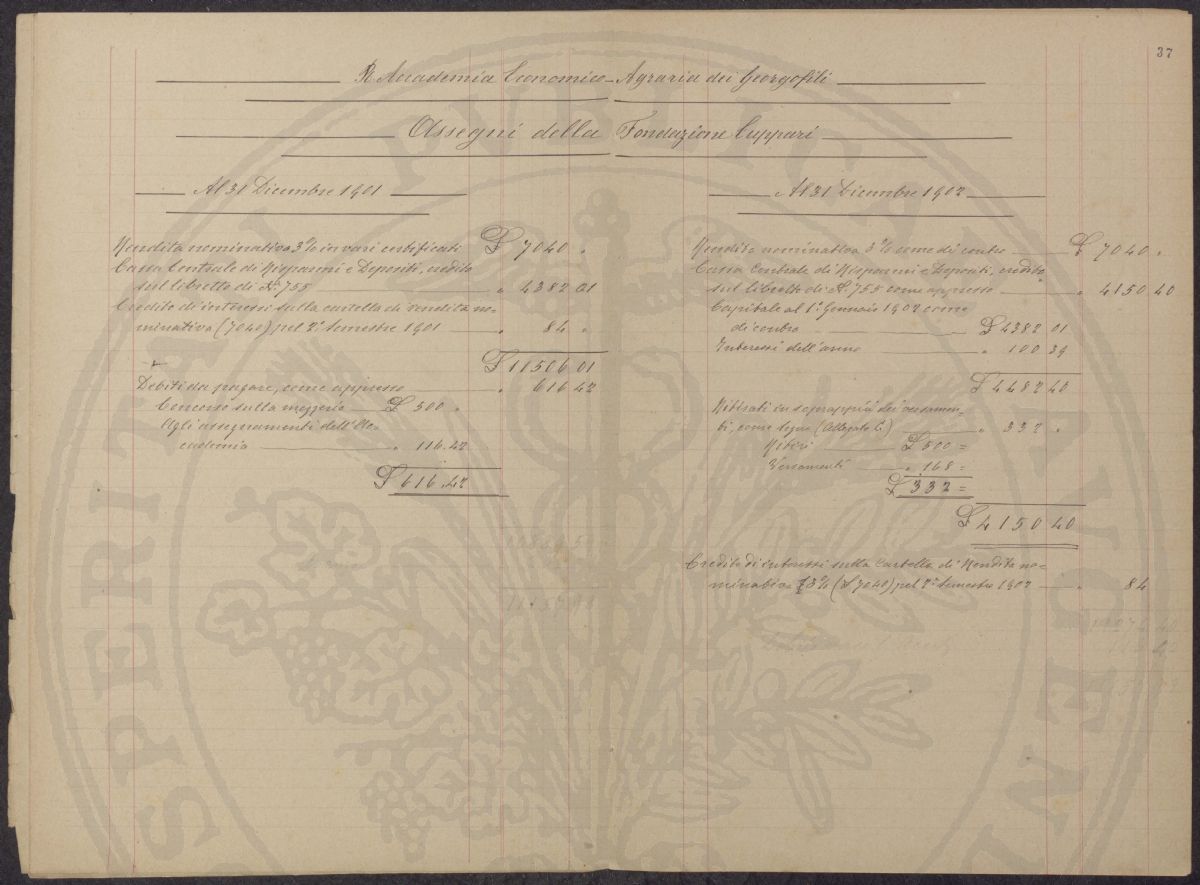 37
R. Accademia Economico-Agraria dei Georgofili
Assegni della Fondazione Cuppari
Al 31 Dicembre 1901
Rendita nominativa 3% in vari certificati £ 7040 "
Cassa Centrale di Risparmi e Depositi, credito
sul libretto di N. 755 " 4382 01
Credito di interessi sulla cartella di rendita no-
minativa (7040) pel 2° Semestre 1901 " 84 "
£ 11506 01
Debiti da pagare, come appresso " 616 42
Concorso sulla mezzeria £ 500 "
Agli assegnamenti dell'Ac-
cademia " 116.42
£ 616.42
Al 31 Dicembre 1902
Rendita nominativa 3% come di contro £ 7040 "
Cassa Centrale di Risparmi e Depositi, credito
sul libretto di N. 755 come appresso " 4150 40
Capitale al 1° Gennaio 1902 come
di contro £ 4382 01
Interessi dell'anno " 100 39
£ 4482 40
Ritirati in soprappiù dei versamen-
ti, come segue (Allegato C) " 332 "
Ritiri £ 500 =
Versamenti " 168 =
£ 332 =
£ 4150 40
Credito di interessi sulla Cartella di Rendita no-
minativa 3% (£ 7040) pel 2° Semestre 1902 " 84
PROSPERITATI PVBLICAE AVGENDAE